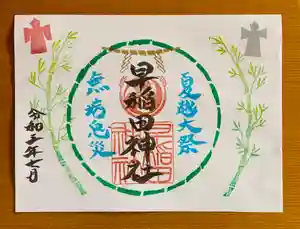 夏越大祭
早稲田神社
無病息災
令和三年七月